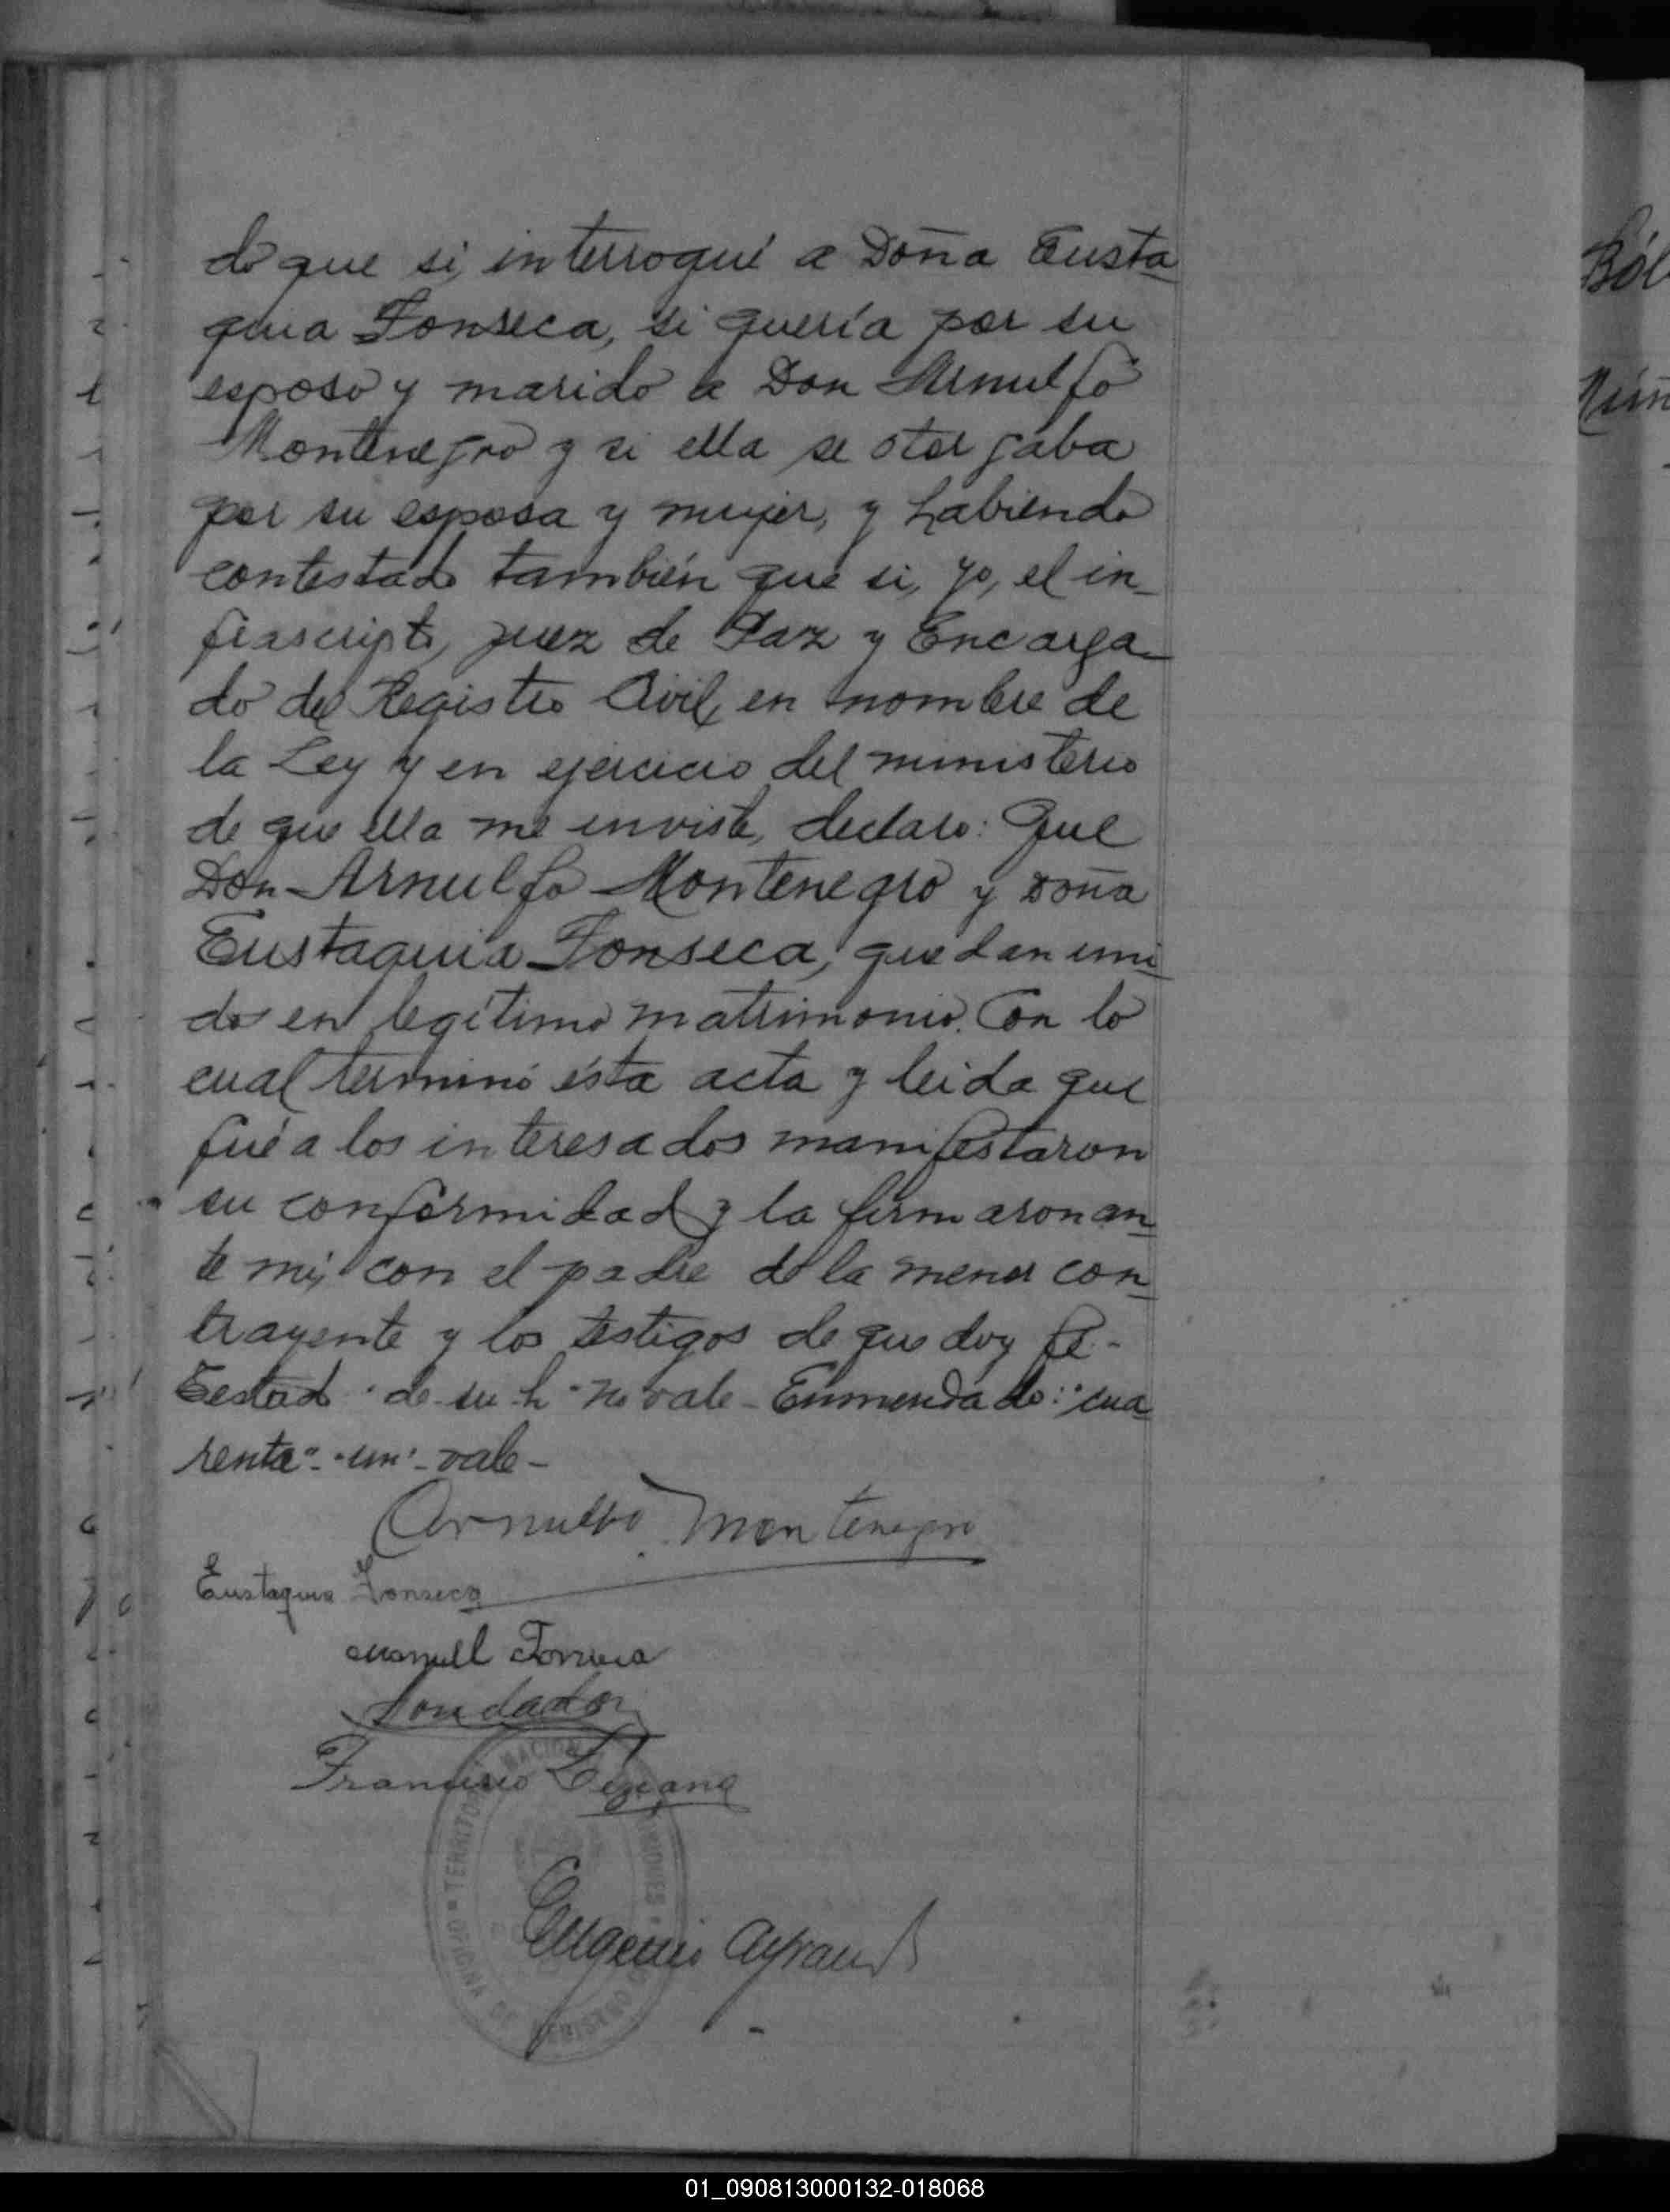 do que si, interrogué a Doña Eusta-
quia Fonseca, si quería por su
esposo y marido a Don Arnulfo
Montenegro y si ella se otorgaba
por su esposa y mujer, y habiendo
contestado también que si, yo, el in-
frascripto, juez de Paz y Encarga-
do del Registro Civil, en nombre de
la Ley y en ejercicio del ministerio
de que ella me inviste, declaro: Que
Don Arnulfo Montenegro y Doña
Eustaquia Fonseca, quedan uni-
dos en legítimo matrimonio. Con lo
cual terminó ésta acta y leida que
fué a los interesados manifestaron
su conformidad y la firmaron an-
te mi, con el padre de la menor con-
trayente y los testigos de que doy fe.-
Testado "de su h" no vale - Enmendado: "cua
renta" - "un" - vale -
Arnulfo Montenegro
Eustaquia Fonseca
Manuel Fonseca
Francisco
Eugenio Ayraud
TERRITORIO NACIONAL MISIONES
OFICINA DE REGISTRO
Ból
Núm
01_090813000132-018068